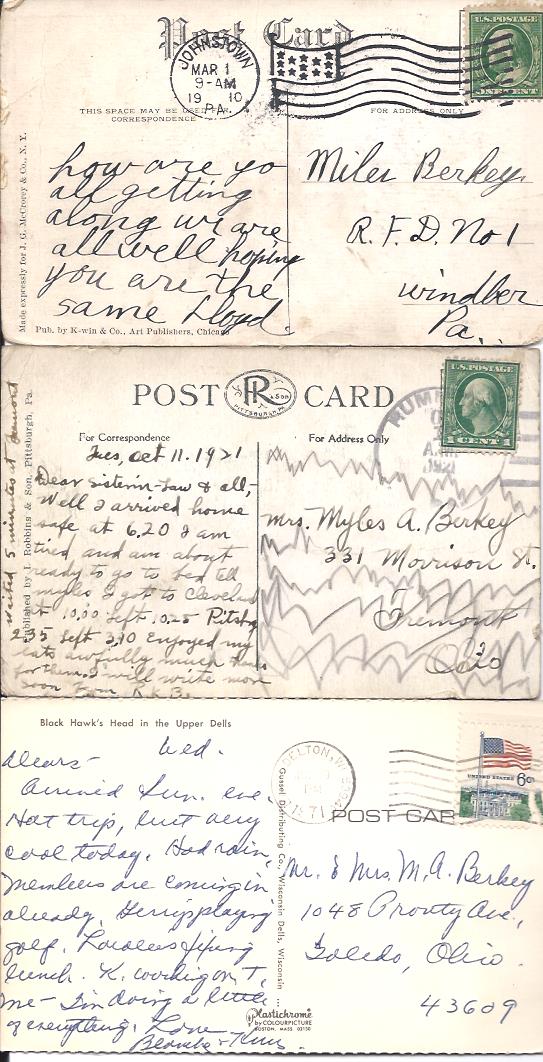 Post Card
JOHNSTOWN
MAR 1
9-AM
19 10
PA.
U.S. POSTAGE
ONE CENT
THIS SPACE MAY BE USED FOR
CORRESPONDENCE
FOR ADDRESS ONLY
Made expressly for J. G. McCrorey & Co., N. Y.
how are yo
all getting
along we are
all well hoping
you are the
same Lloyd.
Miles Berkey.
R. F. D. No 1
windber
Pa..
Pub. by K-win & Co., Art Publishers, Chicago
POST CARD
R & SON
PITTSBURGH, PA.
U.S. POSTAGE
1 CENT 1
RUMM
A.M.
1921
For Correspondence
For Address Only
Published by I. Robbins & Son, Pittsburgh, Pa.
waited 5 minutes at Fremont
Tues, Oct 11. 1921
Dear sister in-Law & all,-
Well I arrived home
safe at 6.20 I am
tired and am about
ready to go to bed tell
Myles I got to Cleveland
at 10.00 Left 10.25 Pitsbg
2.35 Left 3.10 Enjoyed my
eats awfully much thanks
for them. I will write more
soon From R.K.B.
mrs. Myles A. Berkey
331 Morrison St.
Fremont
Ohio
Black Hawk's Head in the Upper Dells
DELTON, W
1971
UNITED STATES 6c
POST CAR
Gussel Distributing Co., Wisconsin Dells, Wisconsin
Wed.
Dears-
Arrived Sun. eve.
Hot trip, but very
cool today. Had rain,
Members are coming in
already. playing
golf. fixing
lunch. K. working on T,
me- I'm doing a little
of everything. Love
Mr. & Mrs. M. A. Berkey
1048 Prouty Ave.,
Toledo, Ohio.
43609
Plastichrome
by COLOURPICTURE
BOSTON, MASS. 02130